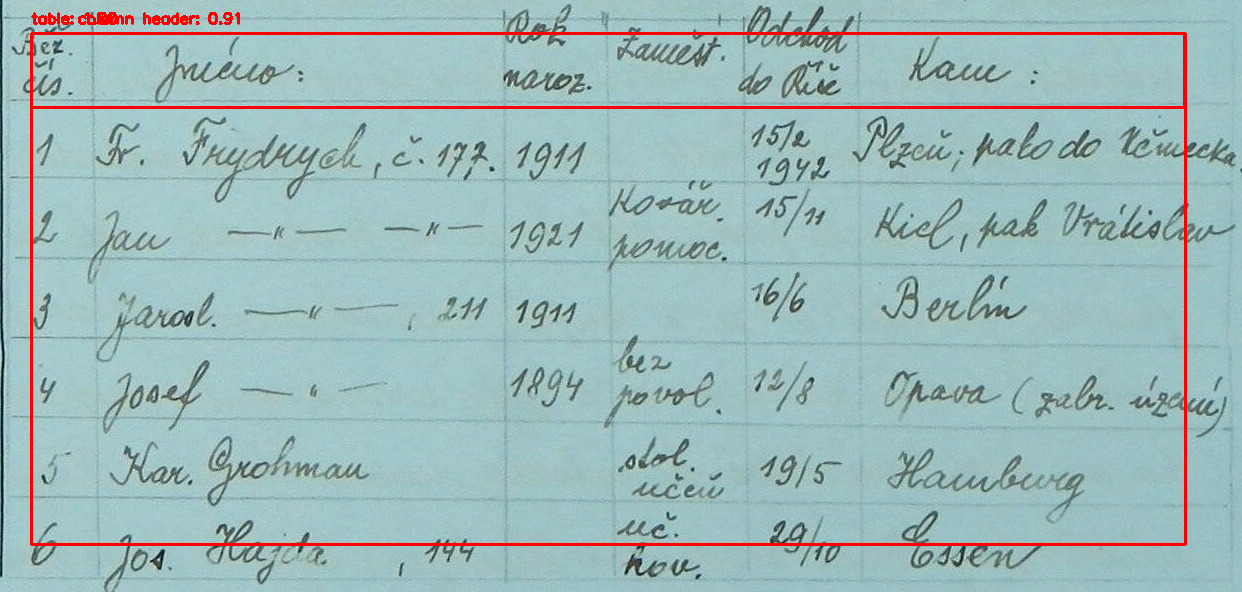 Běž. čís. Jméno: Rok naroz. Zaměst. Odchod do Říše Kam:
1 Fr. Frýdrych, č. 177. 1911 15/2 1942 Plzeň, pako do Německa.
2 Jan —"— —"— 1921 Kovář. pomoc. 15/11 Kiel, pak Vrátislav
3 Jarosl. —"—, 211 1911 16/6 Berlín
4 Josef —"— 1894 bez povol. 12/8 Opava (zabr. území)
5 Kar. Grohman stol. učeň 19/5 Hamburg
6 Jos. Hajda, 144 uč. kov. 29/10 Essen